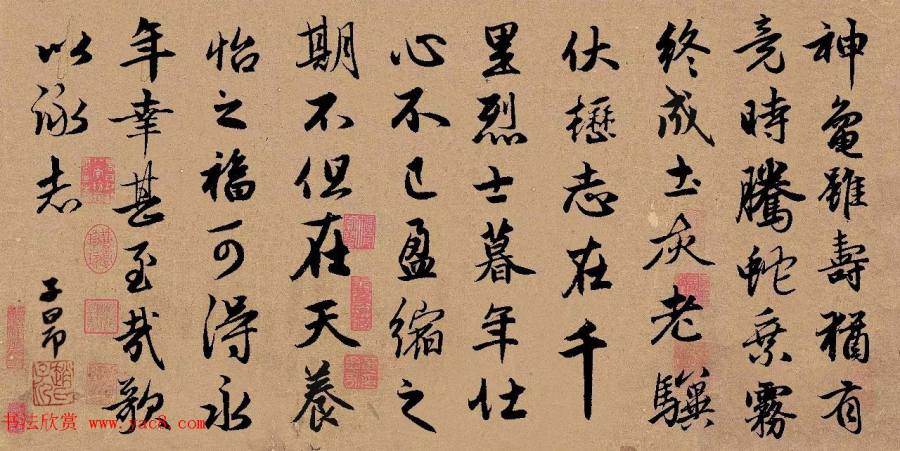 神龜雖壽猶有
竟時騰蛇乘霧
終成土灰老驥
伏櫪志在千
里烈士暮年壯
心不已盈縮之
期不但在天養
怡之福可得永
年幸甚至哉歌
以詠志
子昂
趙氏子昂
书法欣赏 www.yac8.com